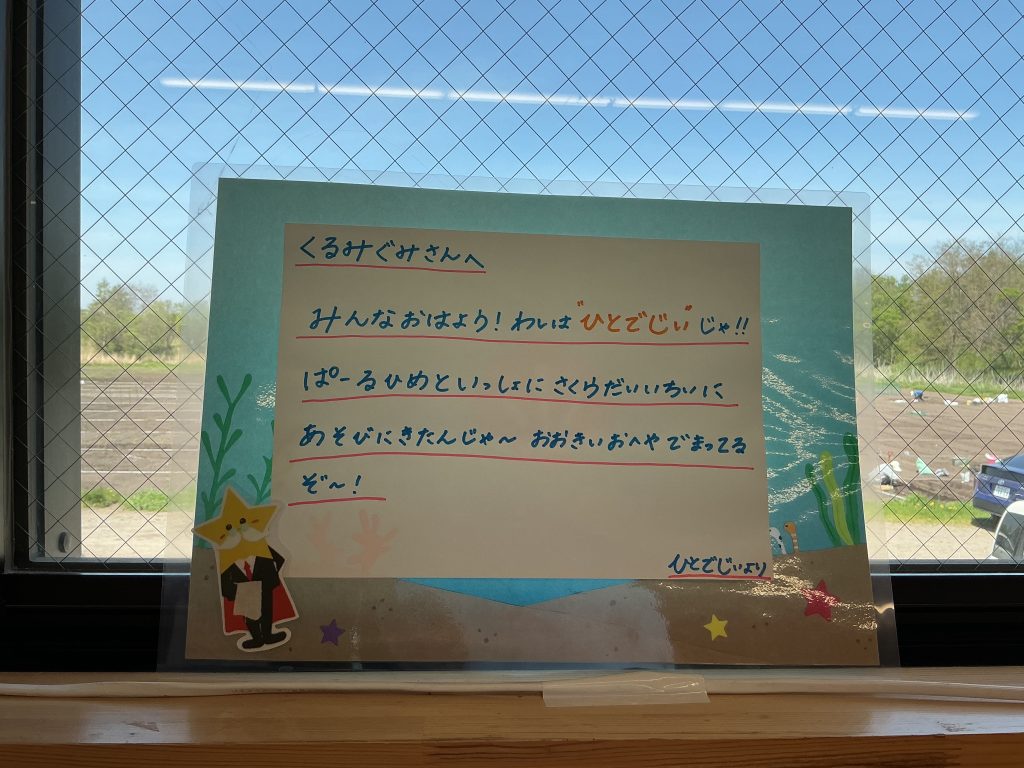 くるみぐみさんへ
みんなおはよう！わしは"ひとでじい"じゃ!!
ぱーるひめといっしょに さくらだいいちいに
あそびにきたんじゃ〜 おおきいおへやでまってる
ぞ〜！
ひとでじいより